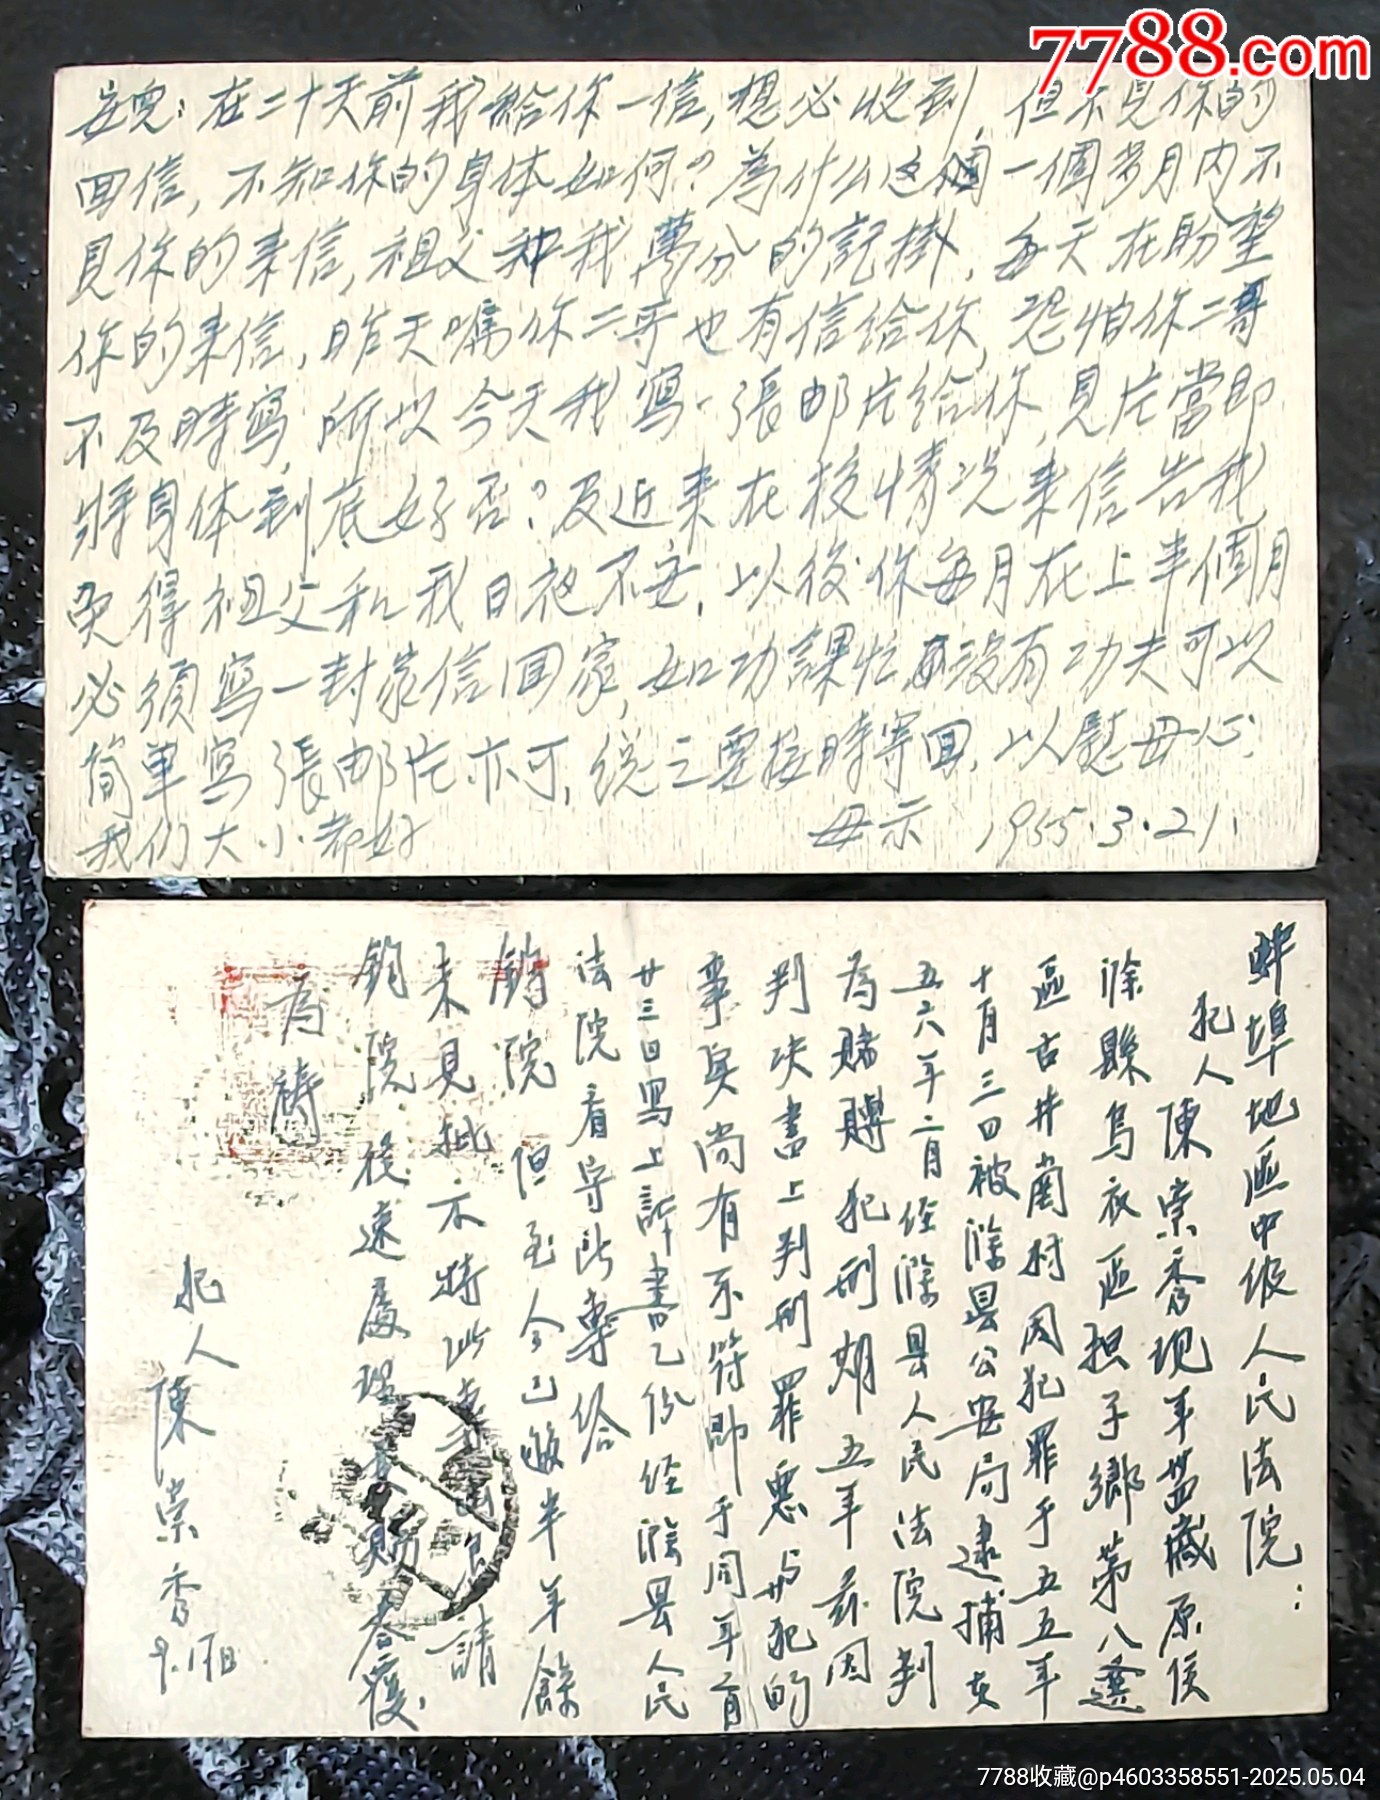 7788.com
安儿：在二十天前我给你一信，想必收到，但不見你的
回信，不知你的身体如何？為什么这個一個多月内不
見你的来信，祖父和我萬分的記掛，每天在盼望
你的来信，昨天嘱你二哥也有信给你，恐怕你二哥
不及時寫，所以今天我寫一張邮片给你，見片當即
將身体到底好否？及近来在校情况来信告我，
免得祖父和我日夜不安，以後你每月在上半個月
必須寫一封家信回家，如功課忙没有功夫可以
简单寫張邮片亦可，总之要按時寄回，以慰母心．
我们大小都好 母示 1955.3.21.
蚌埠地區中级人民法院：
犯人陳崇香现年卅四歲原係
滁縣烏衣區担子鄉第八選
區古井南村因犯罪于五五年
十月三日被滁县公安局逮捕在
五六年二月经滁县人民法院判
為賭賻犯刑期五年兹因
判决書上判刑罪惡与犯的
事실尚有不符即于同年二月
廿三日寫上訴書乙份经滁县人民
法院看守所專给
鈞院但至今已做半年餘
未見批示特此 請
鈞院後速處理 賜答覆，
為禱
犯人陳崇香
9.17日
7788收藏@p4603358551-2025.05.04